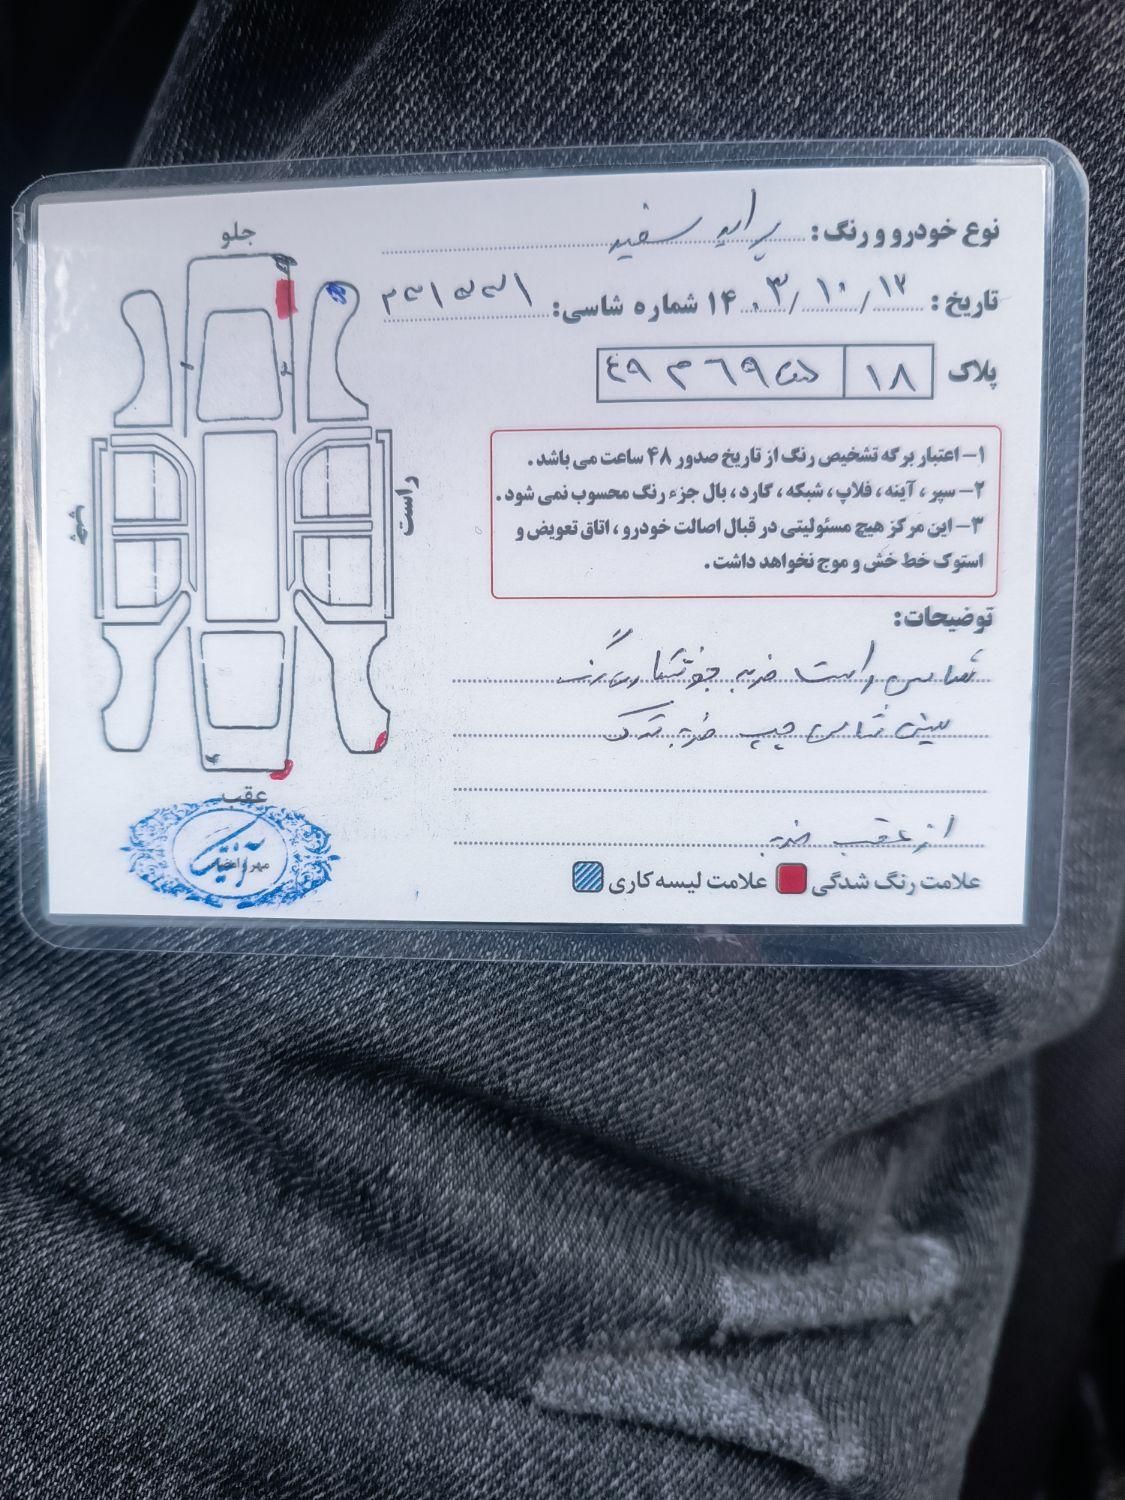 نوع خودرو و رنگ: پراید سفید
تاریخ: ۱۴۰۳/۱۰/۱۲ شماره شاسی:
پلاک ۱۸
۱- اعتبار برگه تشخیص رنگ از تاریخ صدور ۴۸ ساعت می باشد.
۲- سپر، آینه، فلاپ، شبکه، گارد، بال جزء رنگ محسوب نمی شود.
۳- این مرکز هیچ مسئولیتی در قبال اصالت خودرو، اتاق تعویض و
استوک خط خش و موج نخواهد داشت.
توضیحات:
راست ضربه
سینی شاسی چپ ضربه ترک
از عقب ضربه
علامت رنگ شدگی علامت لیسه کاری
جلو
چپ
راست
عقب
مهر و امضاء